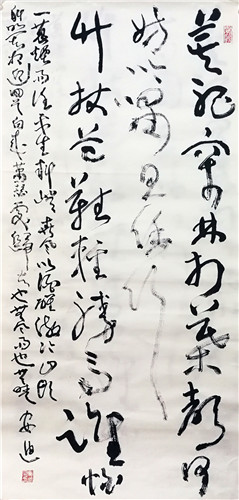 莫聽穿林打葉聲何
妨吟嘯且徐行
竹杖芒鞋輕勝馬誰怕
一蓑烟雨任平生料峭春風吹酒醒微冷山頭
斜照却相迎回首向來蕭瑟處歸去也無風雨也無晴